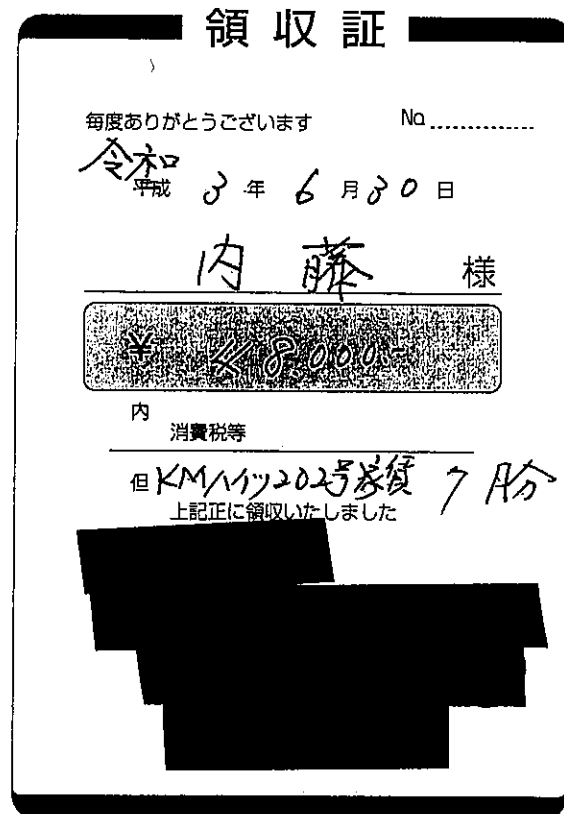 領収証
毎度ありがとうございます No.
令和
平成 3 年 6 月 30 日
内藤 様
¥ 48,000.-
内
消費税等
但 KMハイツ202号家賃 7月分
上記正に領収いたしました